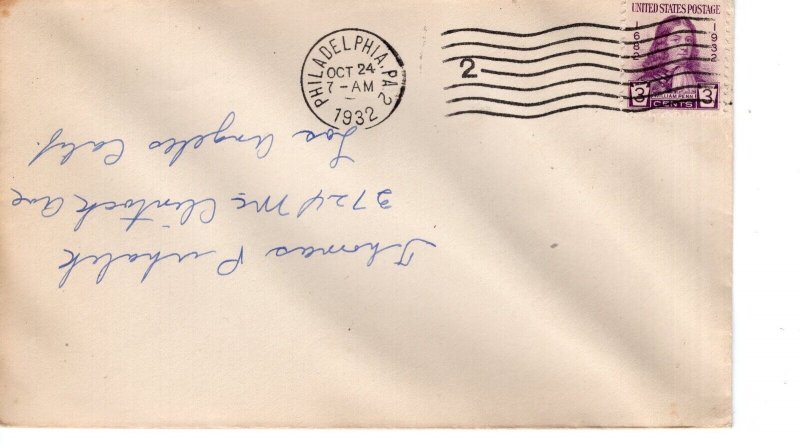 UNITED STATES POSTAGE
1682 1932
WILLIAM PENN
3 CENTS 3
PHILADELPHIA, PA. 2
OCT 24
7-AM
1932
2
Thomas Puhalek
3724 Mc Clintock Ave
Los Angeles Calif